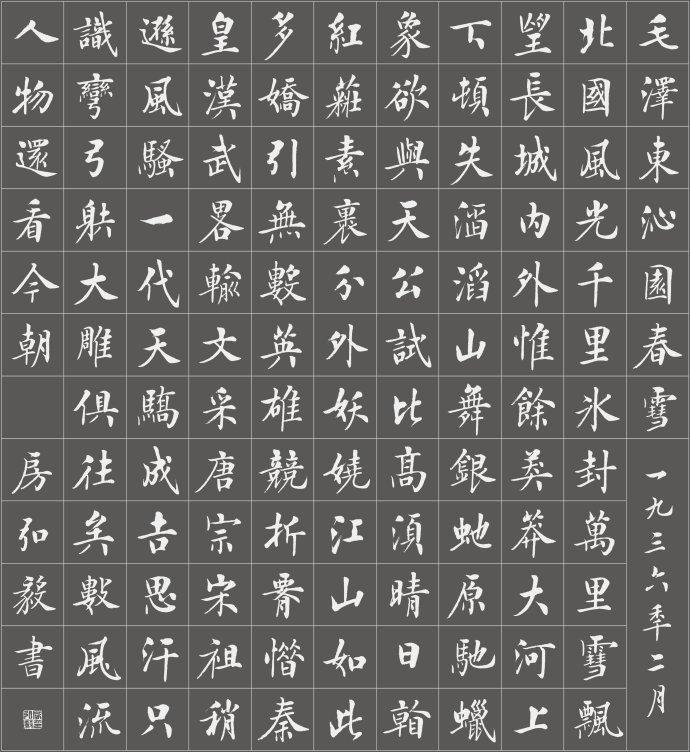 毛澤東沁園春雪 一九三六秊二月
北國風光千里冰封萬里雪飄
望長城內外惟餘莽莽大河上
下頓失滔滔山舞銀虵原馳蠟
象欲與天公試比高須晴日看
紅妝素裹分外妖嬈江山如此
多嬌引無數英雄競折腰惜秦
皇漢武畧輸文采唐宗宋祖稍
遜風騷一代天驕成吉思汗只
識彎弓射大雕俱往矣數風流
人物還看今朝 房弘毅書